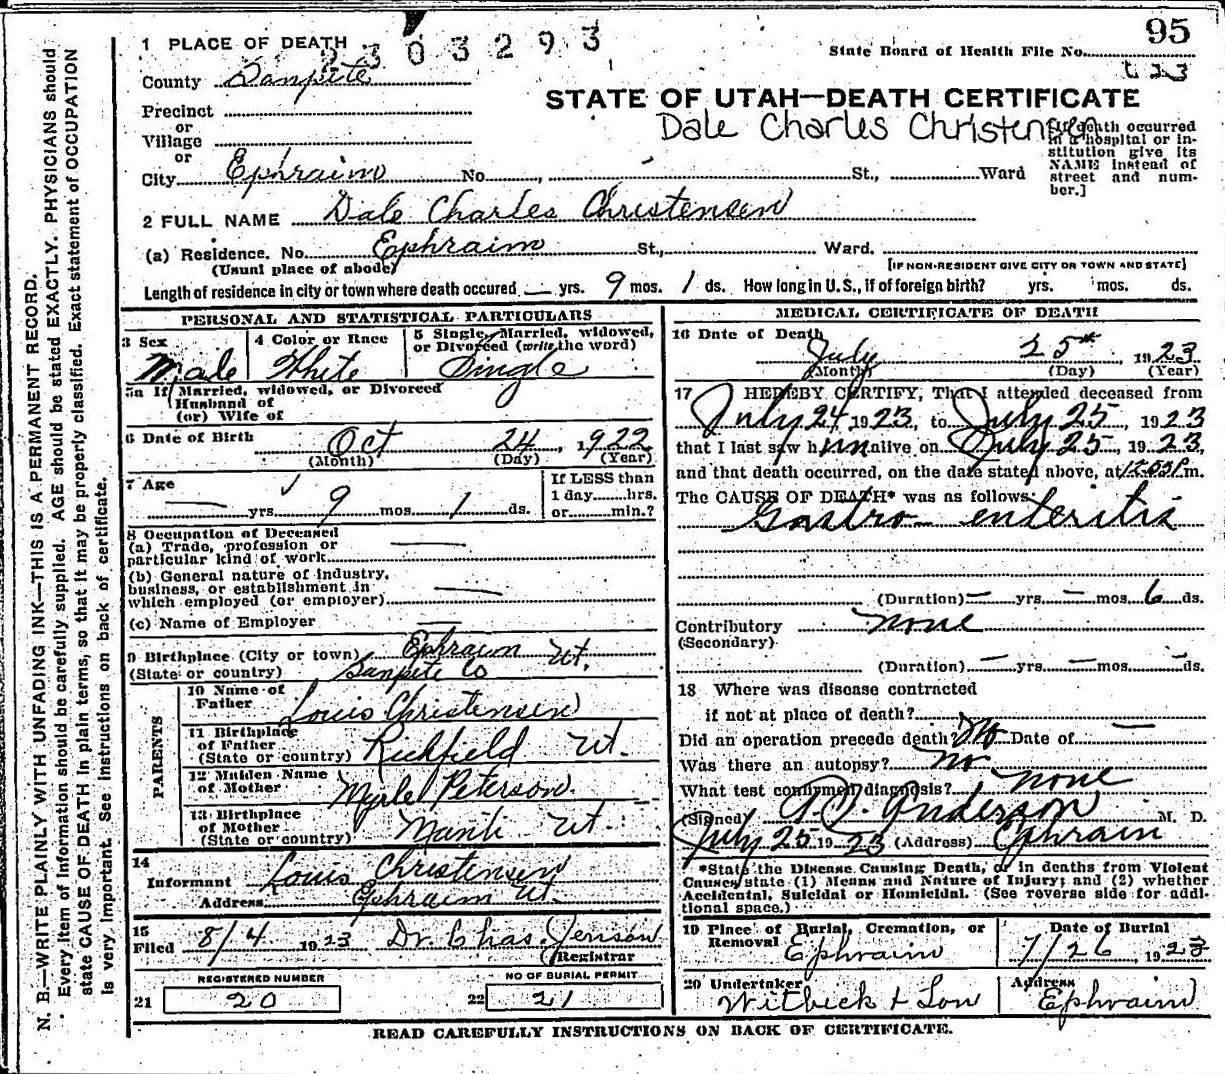 95
2303293
1 PLACE OF DEATH
State Board of Health File No.
County Sanpete
STATE OF UTAH—DEATH CERTIFICATE
Dale Charles Christensen
Precinct
or
Village
or
City Ephraim No. , St., Ward
[If death occurred
in a hospital or in-
stitution give its
NAME instead of
street and num-
ber.]
2 FULL NAME Dale Charles Christensen
(a) Residence. No. Ephraim St., Ward.
(Usual place of abode)
[IF NON-RESIDENT GIVE CITY OR TOWN AND STATE]
Length of residence in city or town where death occured — yrs. 9 mos. 1 ds. How long in U.S., if of foreign birth? yrs. mos. ds.
PERSONAL AND STATISTICAL PARTICULARS
3 Sex
Male
4 Color or Race
White
5 Single, Married, widowed,
or Divorced (write the word)
Single
5a If Married, widowed, or Divorced
Husband of
(or) Wife of
6 Date of Birth Oct 24, 1922
(Month) (Day) (Year)
7 Age
— yrs. 9 mos. 1 ds.
If LESS than
1 day hrs.
or min.?
8 Occupation of Deceased
(a) Trade, profession or
particular kind of work —
(b) General nature of industry,
business, or establishment in
which employed (or employer) —
(c) Name of Employer —
9 Birthplace (City or town) Ephraim Ut.
(State or country) Sanpete Co
PARENTS
10 Name of
Father Louis Christensen
11 Birthplace
of Father
(State or country) Richfield Ut.
12 Maiden Name
of Mother Myrle Peterson
13 Birthplace
of Mother
(State or country) Manti Ut.
14
Informant Louis Christensen
Address Ephraim Ut.
15
Filed 8/4 1923 Dr. Chas. Jenson
Registrar
REGISTERED NUMBER
21 20
NO OF BURIAL PERMIT
22 21
MEDICAL CERTIFICATE OF DEATH
16 Date of Death
July 25th, 1923
(Month) (Day) (Year)
17 I HEREBY CERTIFY, That I attended deceased from
July 24, 1923, to July 25, 1923
that I last saw him alive on July 25, 1923,
and that death occurred, on the date stated above, at m.
The CAUSE OF DEATH* was as follows:
Gastro enteritis
(Duration) — yrs. — mos. 6 ds.
Contributory none
(Secondary)
(Duration) — yrs. — mos. — ds.
18 Where was disease contracted
if not at place of death?
Did an operation precede death? No Date of —
Was there an autopsy? no
What test confirmed diagnosis? none
(Signed) Anderson M. D.
July 25 1923 (Address) Ephraim
*State the Disease Causing Death, or in deaths from Violent
Causes, state (1) Means and Nature of Injury; and (2) whether
Accidental, Suicidal or Homicidal. (See reverse side for addi-
tional space.)
19 Place of Burial, Cremation, or
Removal Ephraim
Date of Burial
7/26, 1923
20 Undertaker
Witbeck & Son
Address
Ephraim
READ CAREFULLY INSTRUCTIONS ON BACK OF CERTIFICATE.
N. B.—WRITE PLAINLY WITH UNFADING INK—THIS IS A PERMANENT RECORD.
Every item of information should be carefully supplied. AGE should be stated EXACTLY. PHYSICIANS should
state CAUSE OF DEATH in plain terms, so that it may be properly classified. Exact statement of OCCUPATION
is very important. See instructions on back of certificate.